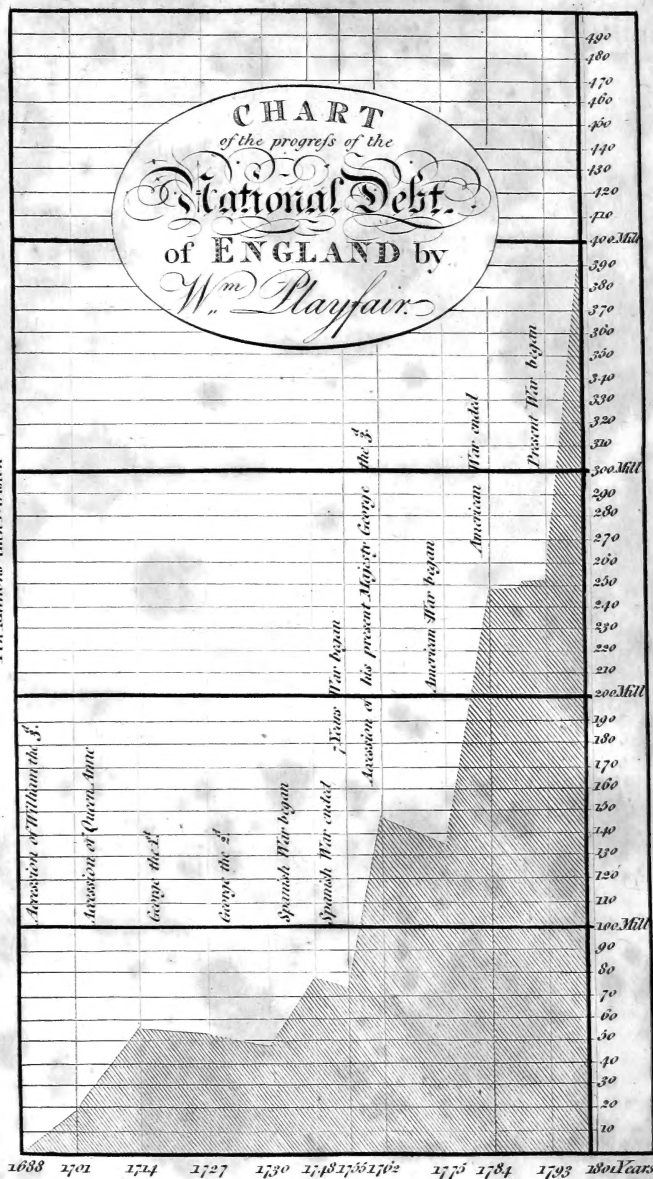 CHART
of the progreſs of the
National Debt.
of ENGLAND by
Wm Playfair.
490
480
470
460
450
440
430
420
410
400 Mill
390
380
370
360
350
340
330
320
310
300 Mill
290
280
270
260
250
240
230
220
210
200 Mill
190
180
170
160
150
140
130
120
110
100 Mill
90
80
70
60
50
40
30
20
10
Accession of William the 3d.
Accession of Queen Anne
George the 1st
George the 2d
Spanish War began
Spanish War ended
7 Years War began
Accession of his present Majesty George the 3d.
American War began
American War ended
Present War began
1688 1701 1714 1727 1730 1748 1755 1762 1775 1784 1793 1801 Years